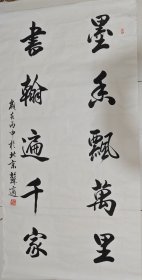 墨香飄萬里
書翰遍千家
歲在丙申於北京